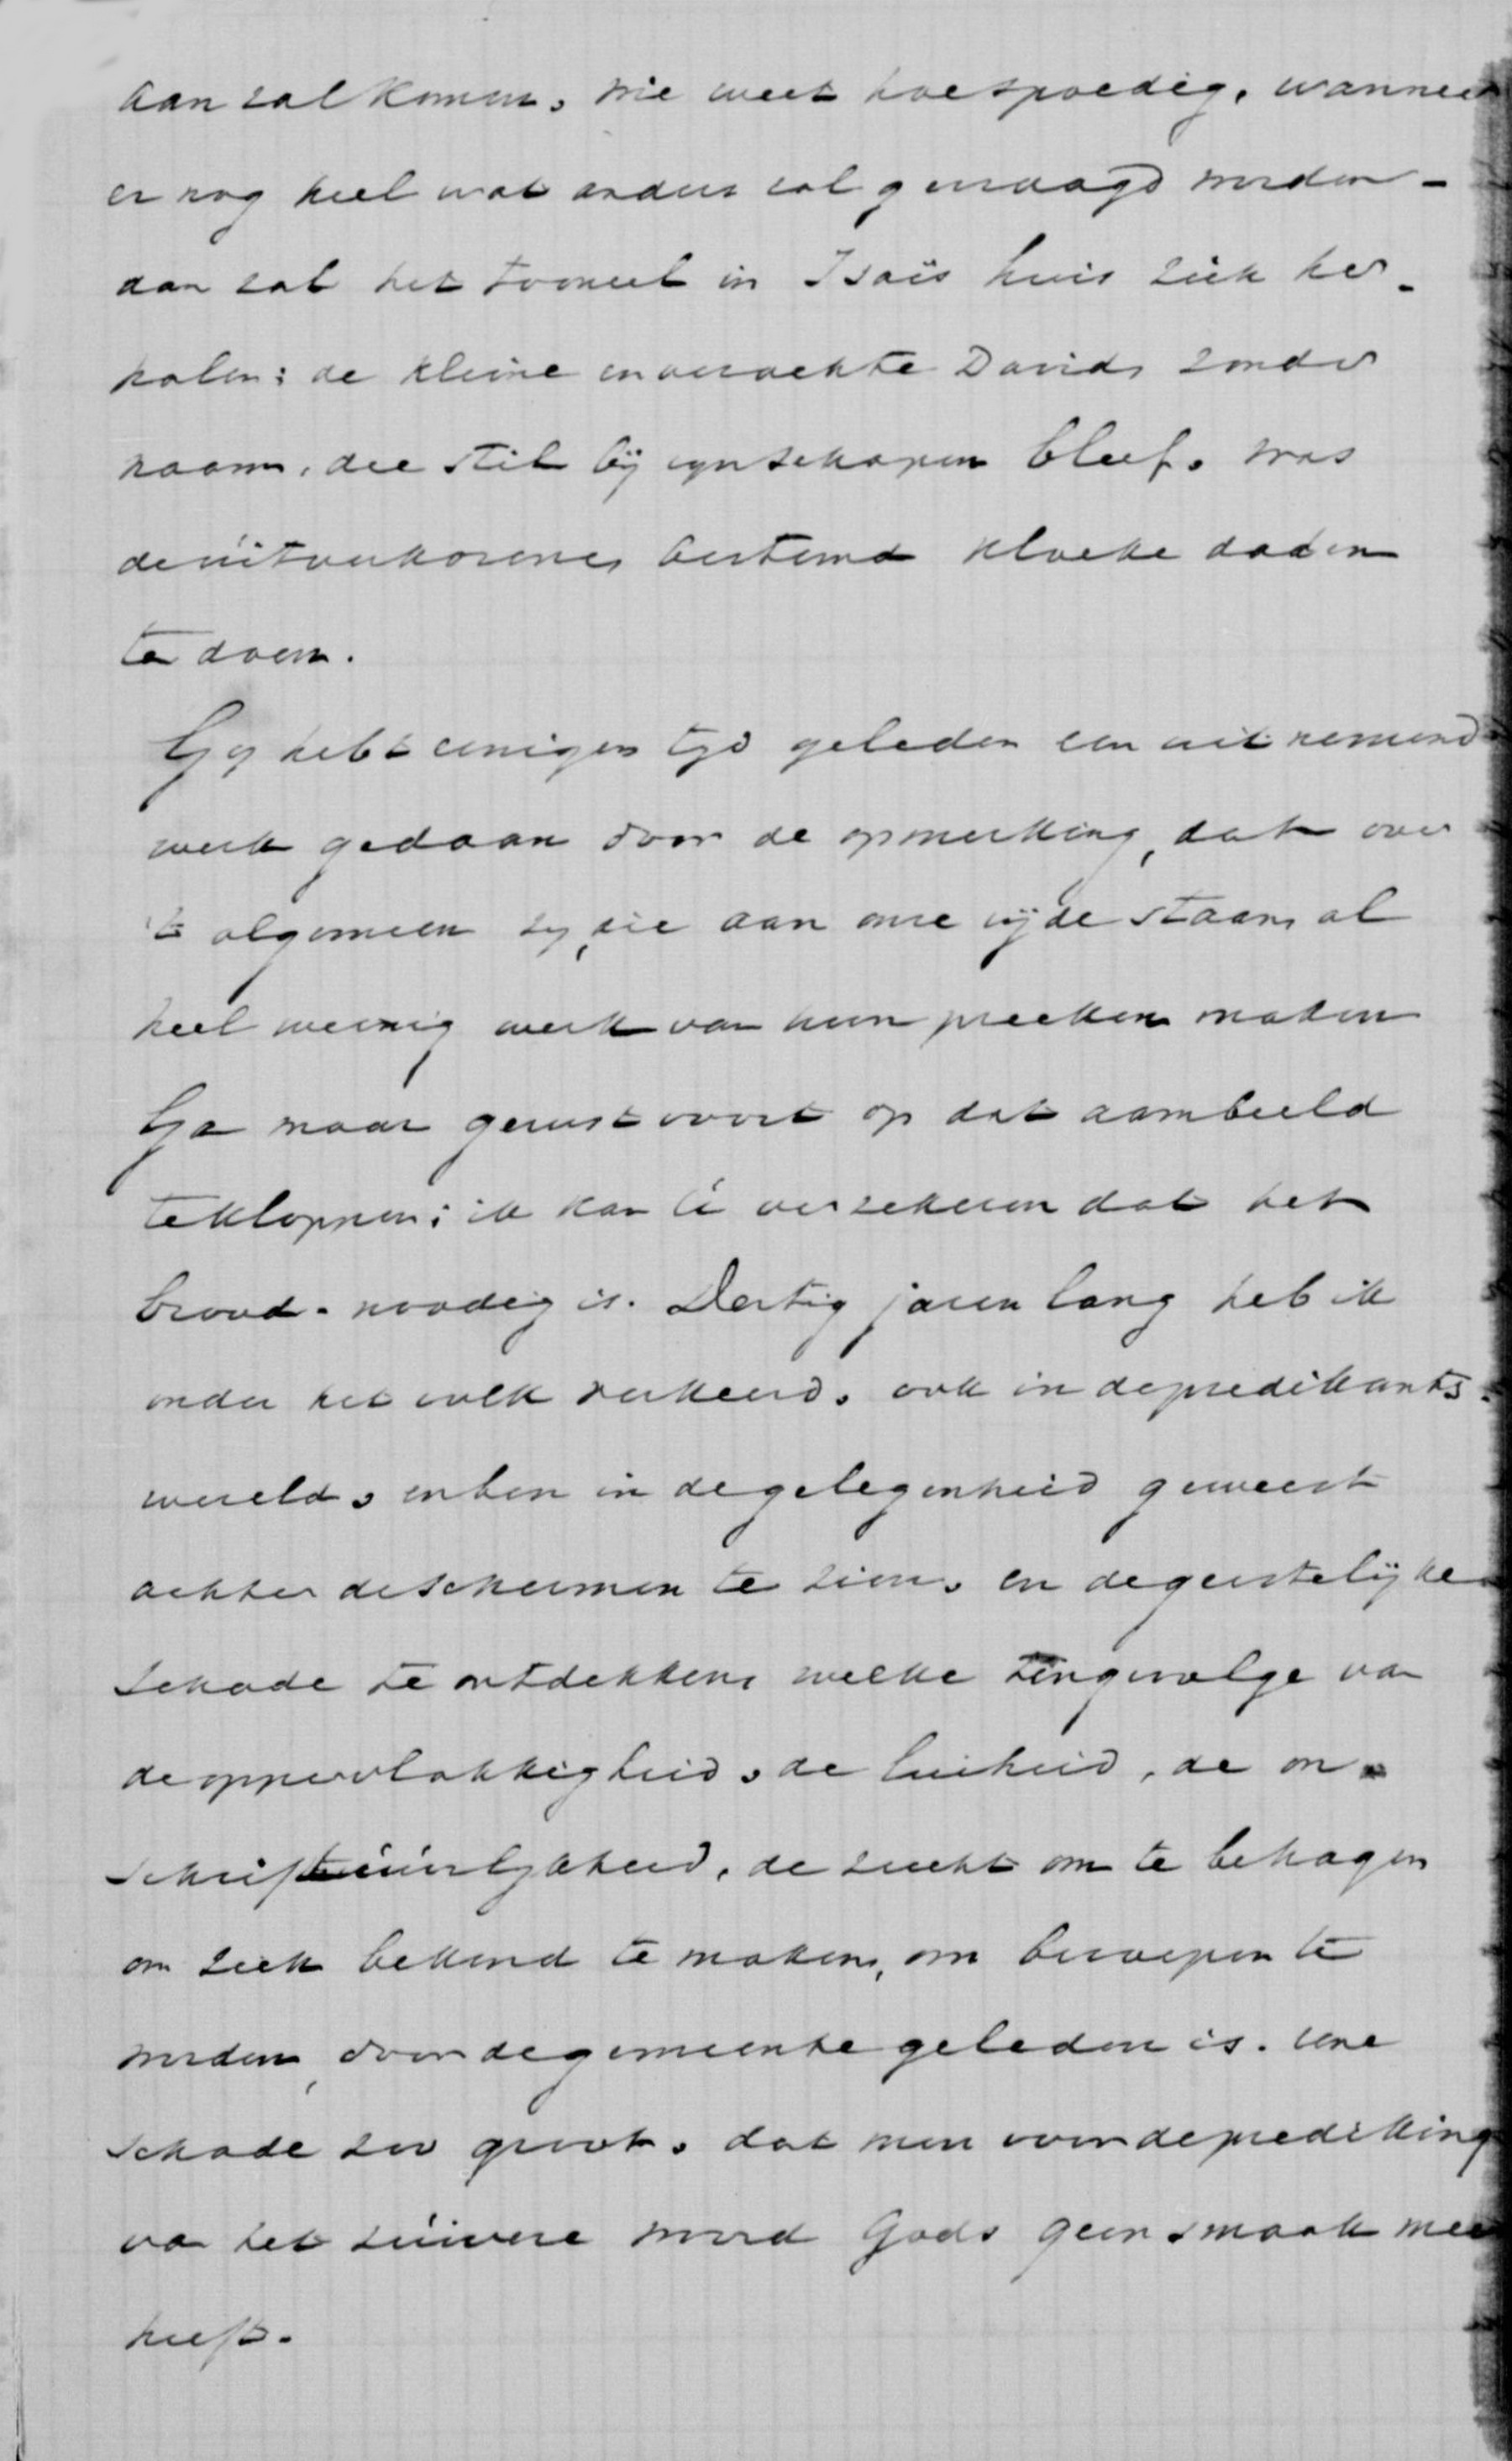 aan zal komen, wie weet hoe spoedig, wanneer
er nog heel wat anders zal gevraagd worden -
dan zal het tooneel in Isaïs huis zich her-
halen: de kleine en verachte David, zonder
naam, die stil bij zyn schapen bleef, was
de uitverkorene, bestemd kloeke daden
te doen.
Gy hebt eenigen tyd geleden een uitnemend
werk gedaan door de opmerking, dat over
't algemeen zy, die aan onze zijde staan, al
heel weinig werk van hun preeken maken
Ga maar gerust voort op dat aambeeld
te kloppen; ik kan U verzekeren dat het
brood-noodig is. Dertig jaren lang heb ik
onder het volk verkeerd, ook in de predikants-
wereld, en ben in de gelegenheid geweest
achter de schermen te zien, en de geestelijke
schade te ontdekken, welke tengevolge van
de oppervlakkigheid, de luiheid, de on-
schriftuurlykheid, de zucht om te behagen
om zich bekend te maken, om beroepen te
worden, door de gemeente geleden is. eene
schade zoo groot, dat men voor de prediking
van het zuivere woord Gods geen smaak meer
heeft.